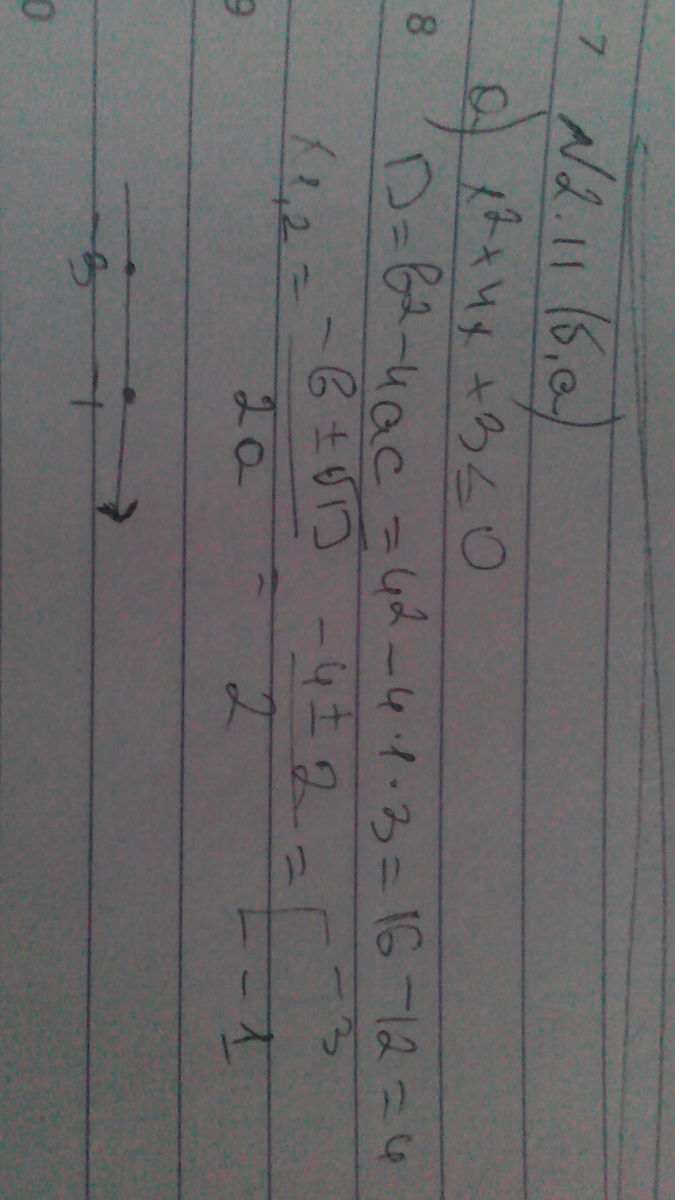 7 N2.11 (б,а)
а) x² + 4x + 3 ≤ 0
8 D = b² - 4ac = 4² - 4·1·3 = 16 - 12 = 4
x₁,₂ = (-b ± √D) / 2a = (-4 ± 2) / 2 = [ -3 -1
9
-3 -1
0